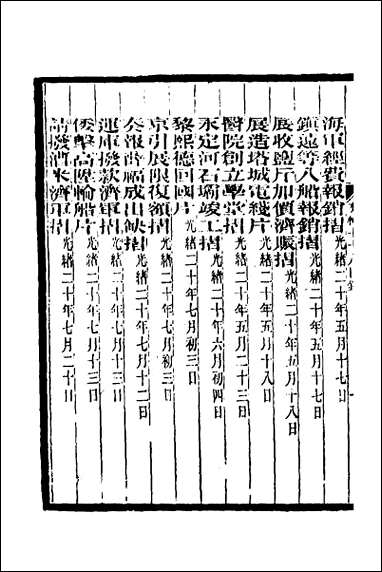 海軍經費報銷摺光緒二十年五月十七日
鎮遠等八船報銷摺光緒二十年五月十七日
展收鹽斤加價濟賑摺光緒二十年五月十八日
展造塔城電綫片光緒二十年五月十八日
醫院創立學堂摺光緒二十年五月二十三日
永定河石壩竣工摺光緒二十年六月初四日
黎熙德回國片光緒二十年七月初三日
京引展限復額摺光緒二十年七月初三日
奏報晉福成出缺摺光緒二十年七月十二日
運庫撥款濟軍摺光緒二十年七月十三日
倭擊高陞輪船片光緒二十年七月十三日
請撥漕米濟軍摺光緒二十年七月二十日